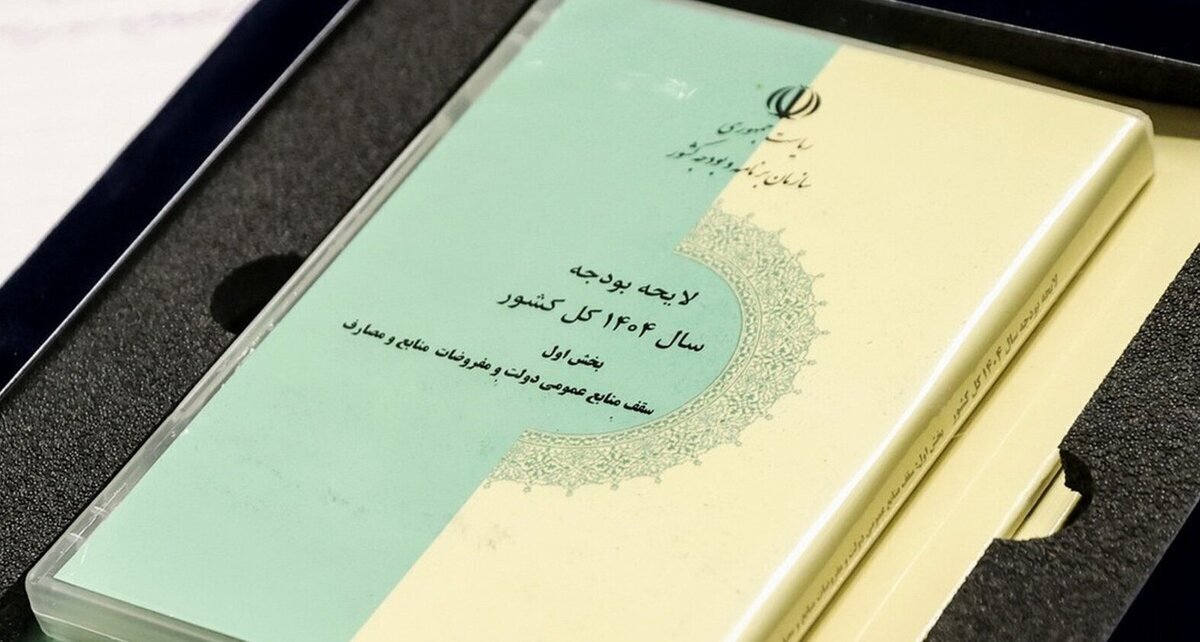 ریاست جمهوری
سازمان برنامه و بودجه کشور
لایحه بودجه
سال ۱۴۰۴ کل کشور
بخش اول
سقف منابع عمومی دولت و مفروضات منابع و مصارف
لایحه بودجه سال ۱۴۰۴ کل کشور
بخش اول: سقف منابع عمومی دولت و مفروضات منابع و